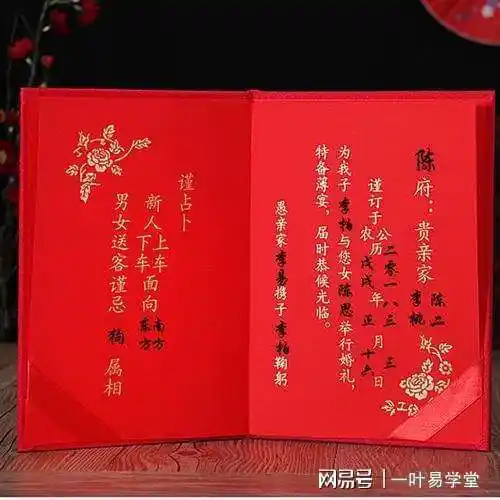 陈府：贵亲家 陈二 李桃
谨订于 公历二零一八年三月三日
农历戊戌年正月十六
为我子李柏与您女陈思举行婚礼，
特备薄宴，届时恭候光临。
愚亲家李易携子李柏鞠躬
谨占卜
新人上车面向南方
下车面向东方
男女送客谨忌 狗 属相
网易号 | 一叶易学堂